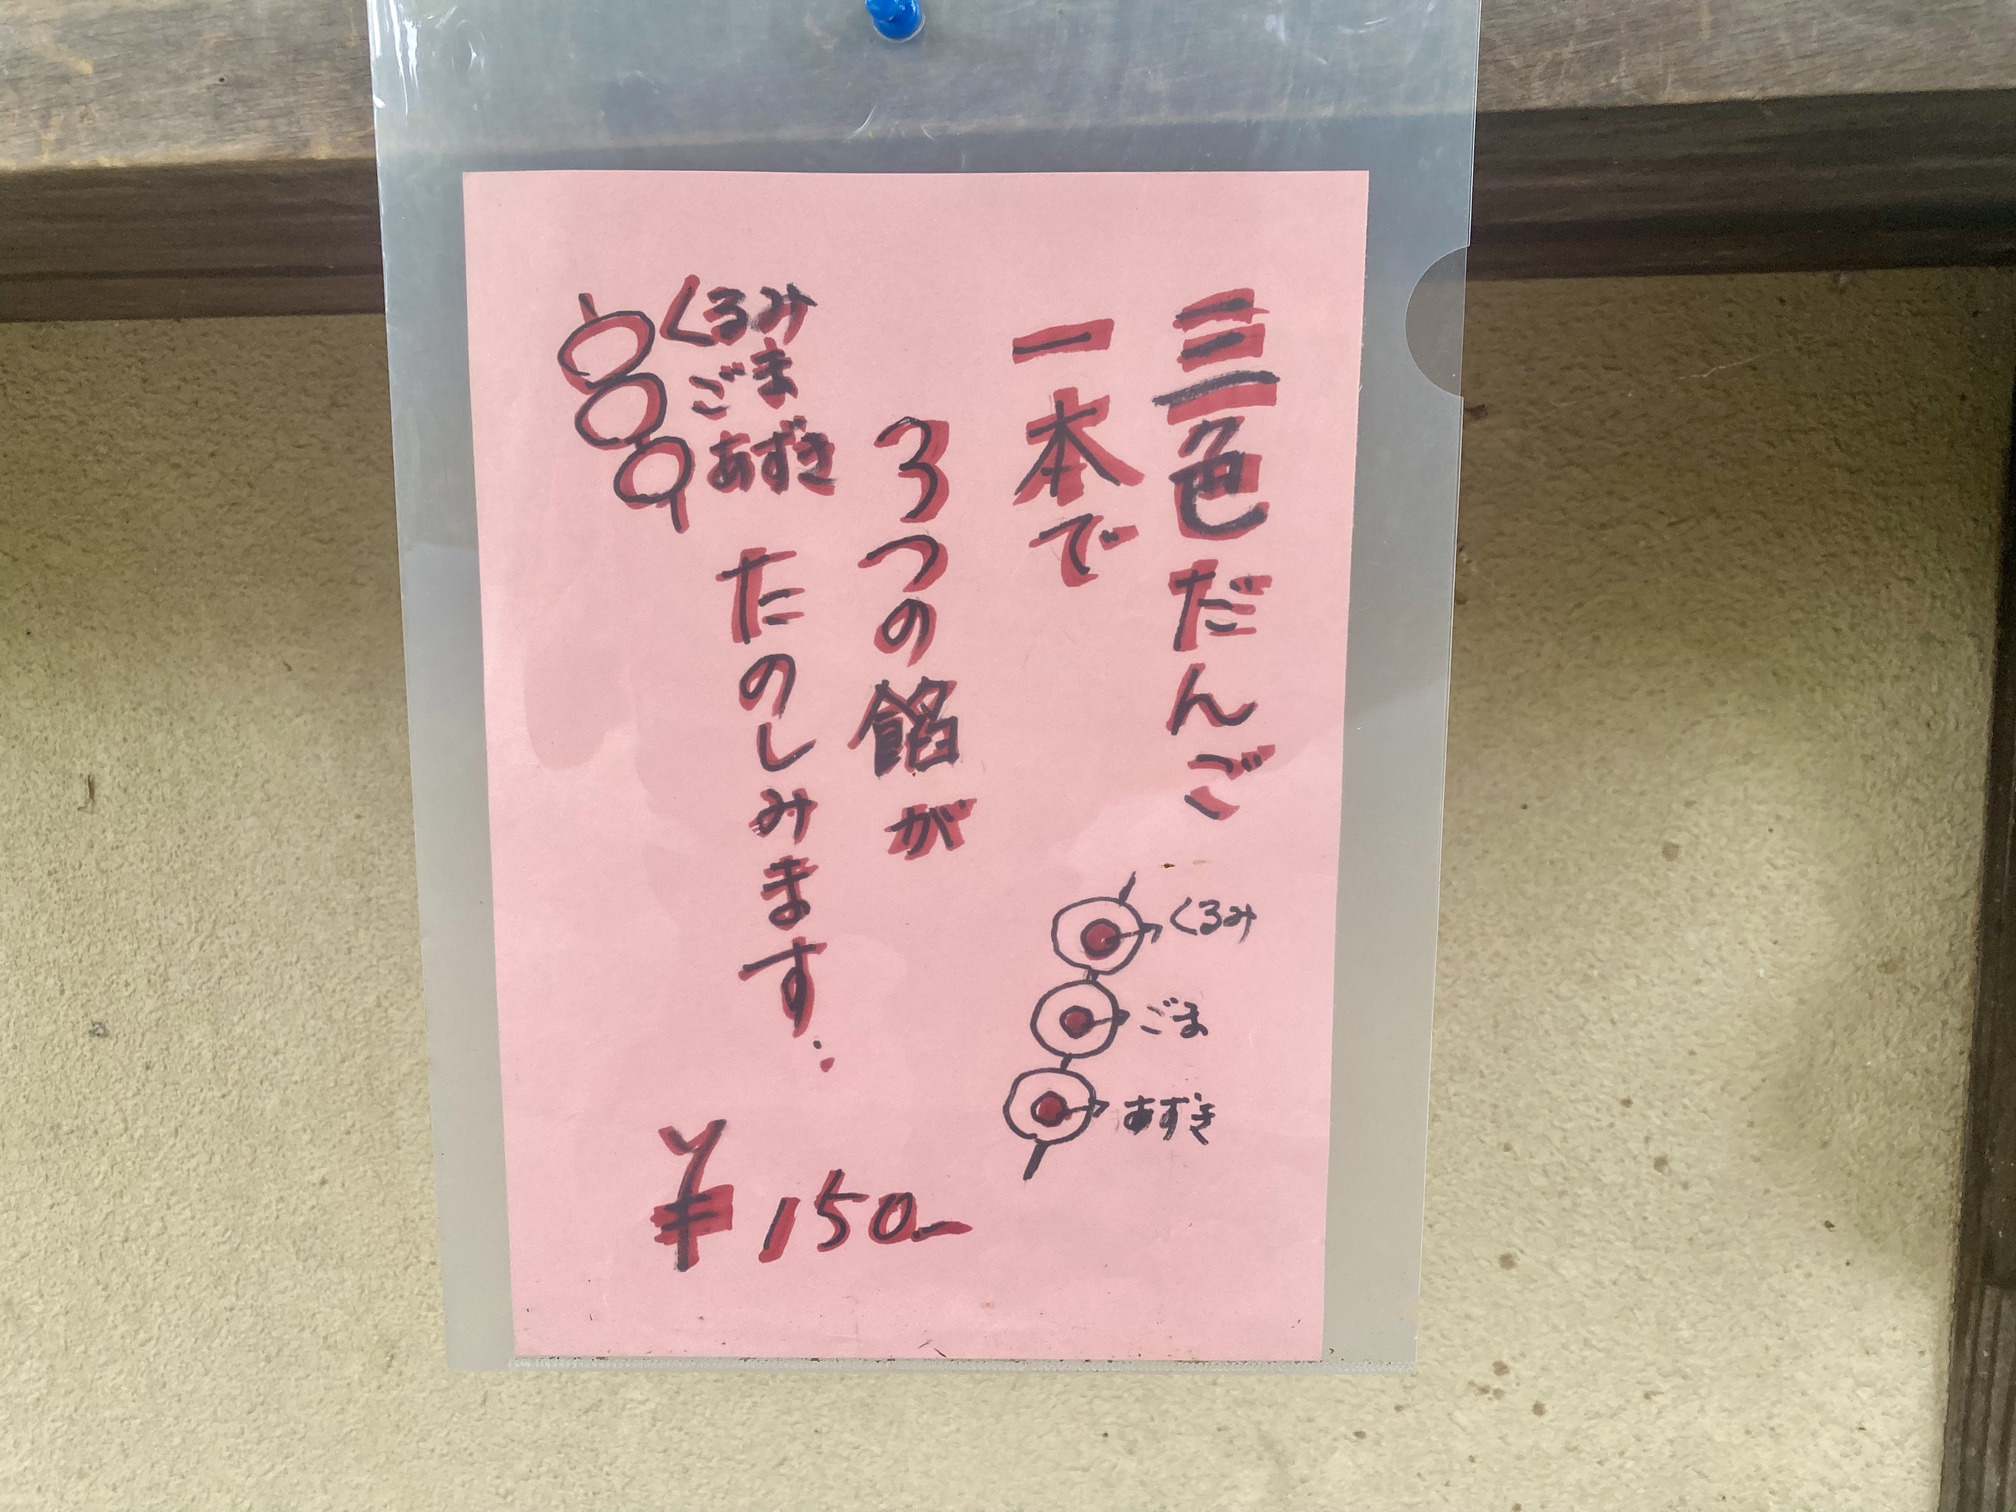 三色だんご
くるみ
ごま
あずき
一本で
3つの餡が
たのしみます‥
くるみ
ごま
あずき
¥150-